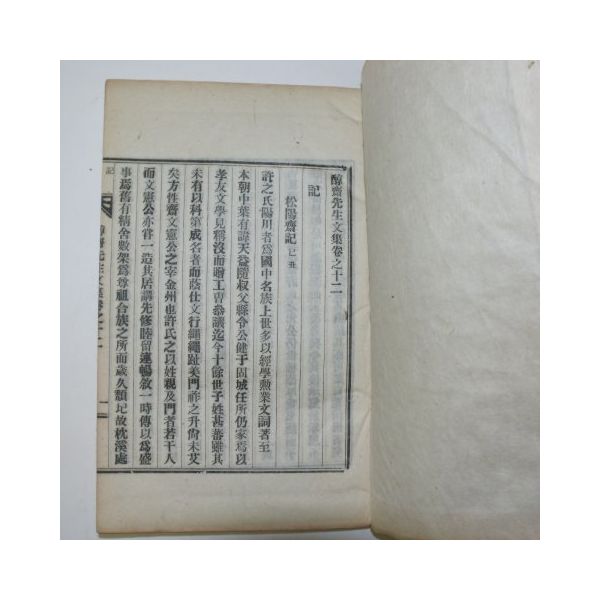 醇齋先生文集卷之十二
記
松陽齋記 己丑
許之氏陽川者爲國中名族上世多以經學勳業文詞著至
本朝中葉有諱天益隨叔父縣令公健于固城任所仍家焉以
孝友文學見稱沒而贈工曹參議迄今十餘世子姓甚蕃雖其
未有以科第成名者而蔭仕文行繩繩趾美門祚之升尙未艾
矣方性齋文憲公之宰金州也許氏之以姓親及門者若干人
而文憲公亦甞一造其居講先修睦留連暢敘一時傳以爲盛
事焉舊有精舍數架爲尊祖合族之所而歲久頹圮故枕溪處
記
醇齋先生文集卷之十二
一